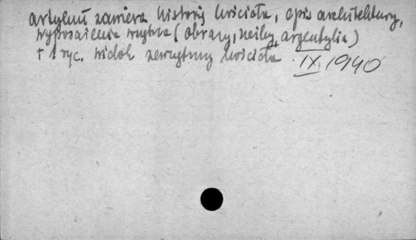 artykuł zawiera historię kościoła, opis architektury,
wyposażenie wnętrza (obrazy, rzeźby, argentylia)
+ 1 ryc. widok zewnętrzny kościoła IX.1940